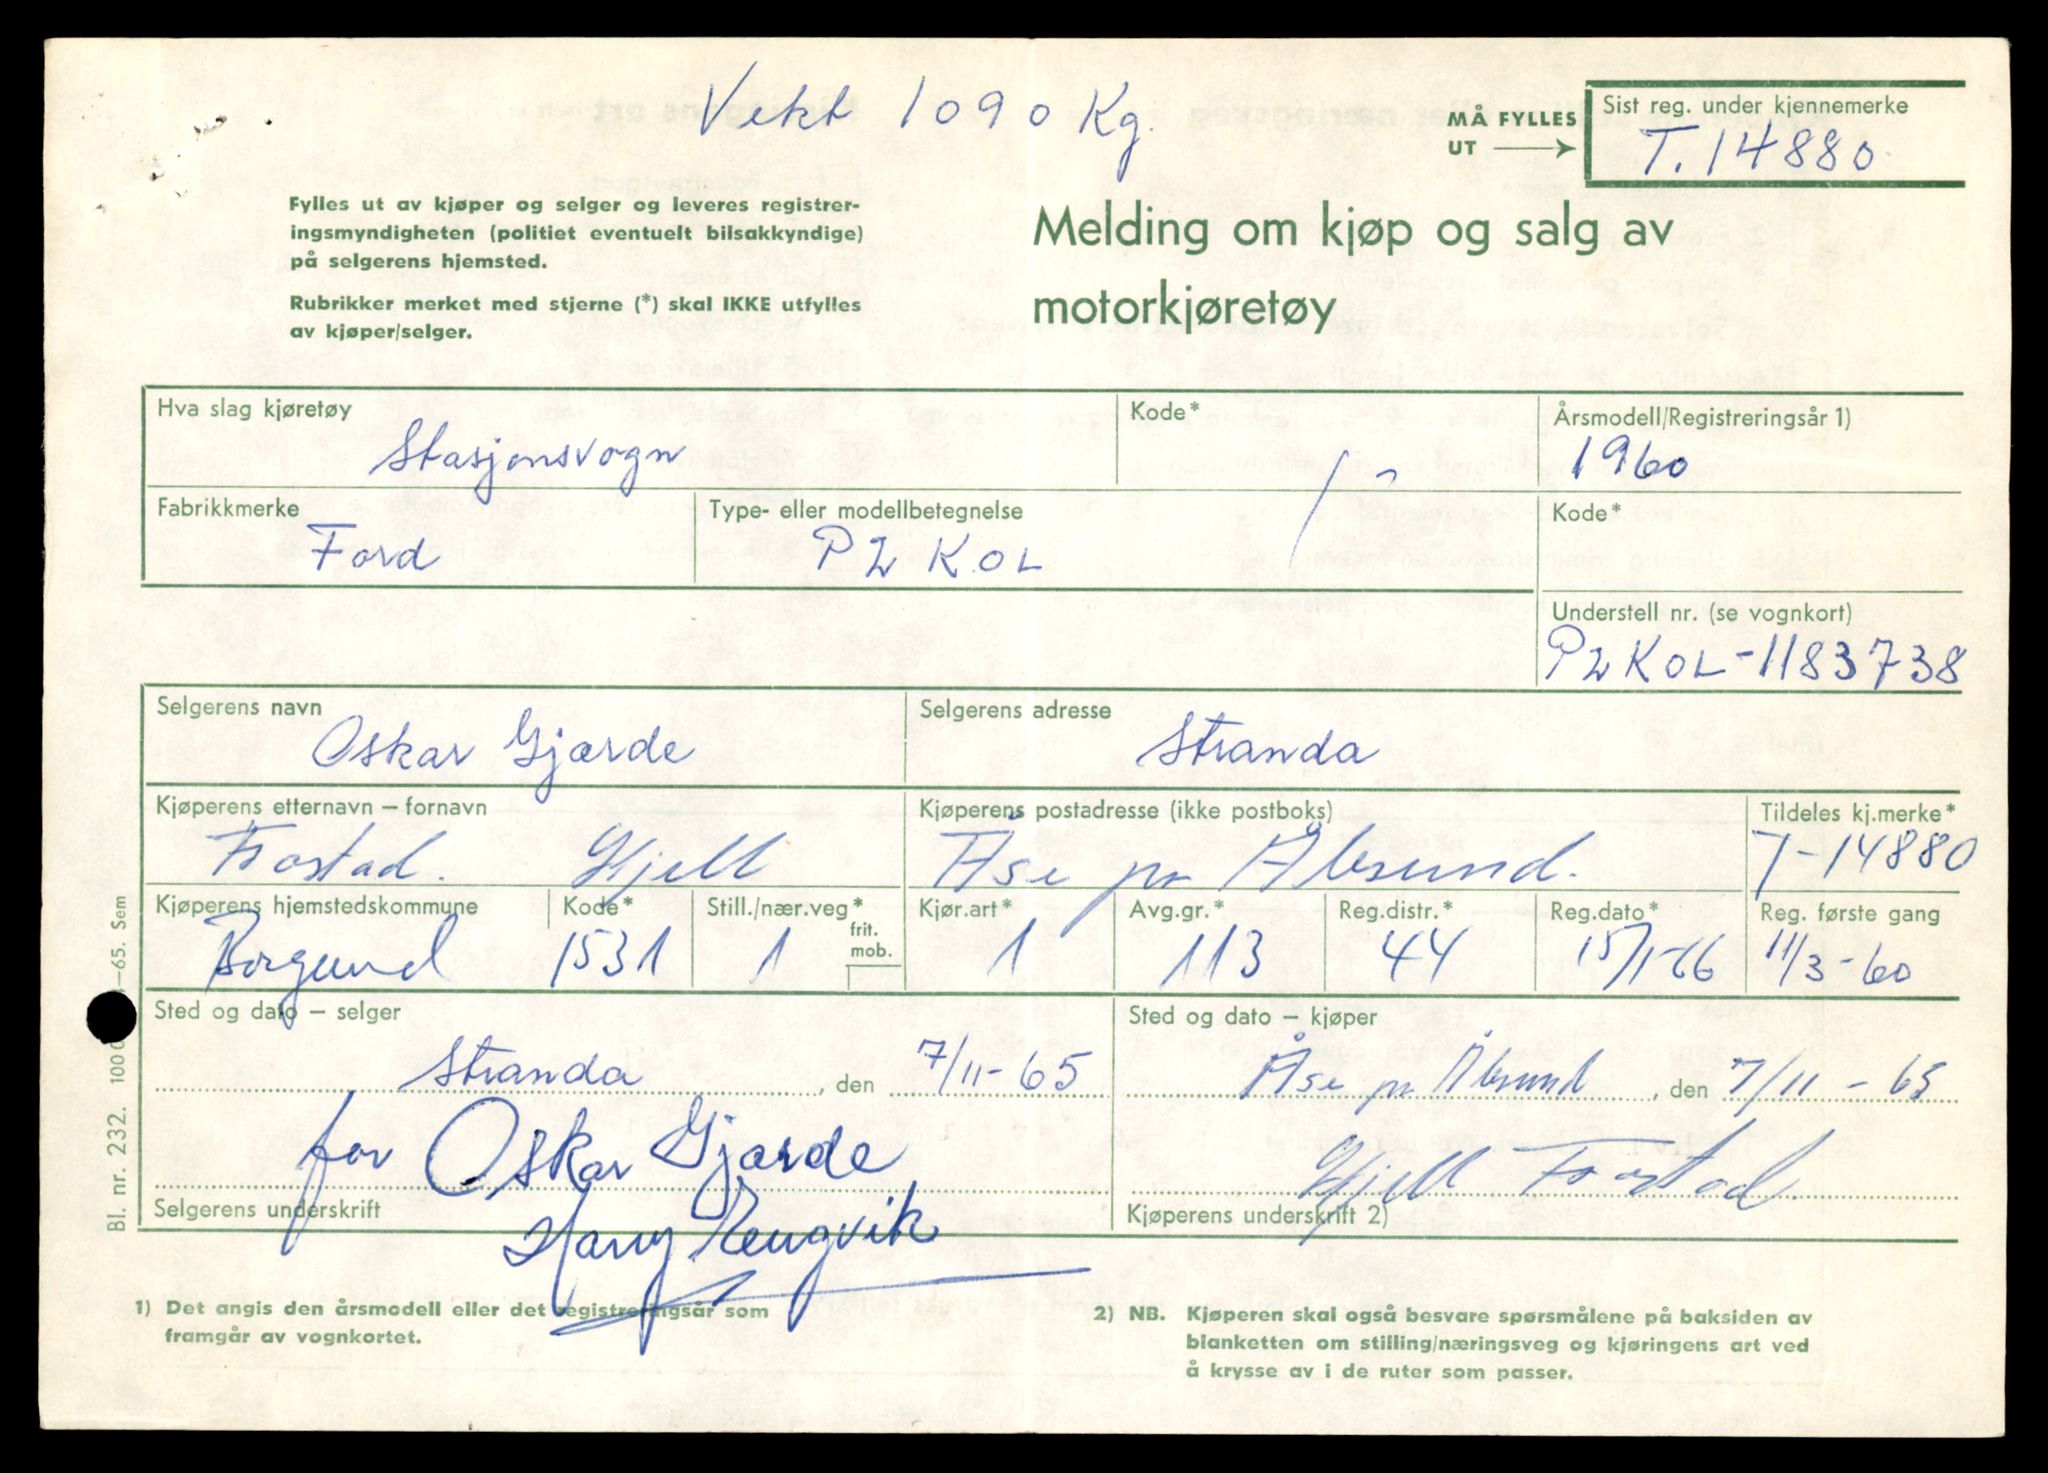 Vekt 1090 Kg.
MÅ FYLLES UT
Sist reg. under kjennemerke
T. 14880
Fylles ut av kjøper og selger og leveres registrer-
ingsmyndigheten (politiet eventuelt bilsakkyndige)
på selgerens hjemsted.
Rubrikker merket med stjerne (*) skal IKKE utfylles
av kjøper/selger.
Melding om kjøp og salg av
motorkjøretøy
Hva slag kjøretøy
Stasjonsvogn
Kode*
Årsmodell/Registreringsår 1)
1960
Fabrikkmerke
Ford
Type- eller modellbetegnelse
P2 KOL
Kode*
Understell nr. (se vognkort)
P2KOL-1183738
Selgerens navn
Oskar Gjærde
Selgerens adresse
Stranda
Kjøperens etternavn – fornavn
Frostad. Kjell
Kjøperens postadresse (ikke postboks)
Åse pr Ålesund.
Tildeles kj.merke*
T-14880
Kjøperens hjemstedskommune
Borgund
Kode*
1531
Still./nær.veg*
1
frit. mob.
Kjør.art*
1
Avg.gr.*
113
Reg.distr.*
44
Reg.dato*
15/1-66
Reg. første gang
11/3-60
Sted og dato – selger
Stranda, den 7/11-65
for Oskar Gjærde
Selgerens underskrift
Harry
Sted og dato – kjøper
Åse pr Ålesund, den 7/11-65
Kjell Frostad
Kjøperens underskrift 2)
1) Det angis den årsmodell eller det registreringsår som
framgår av vognkortet.
2) NB. Kjøperen skal også besvare spørsmålene på baksiden av
blanketten om stilling/næringsveg og kjøringens art ved
å krysse av i de ruter som passer.
Bl. nr. 232. 65. Sem